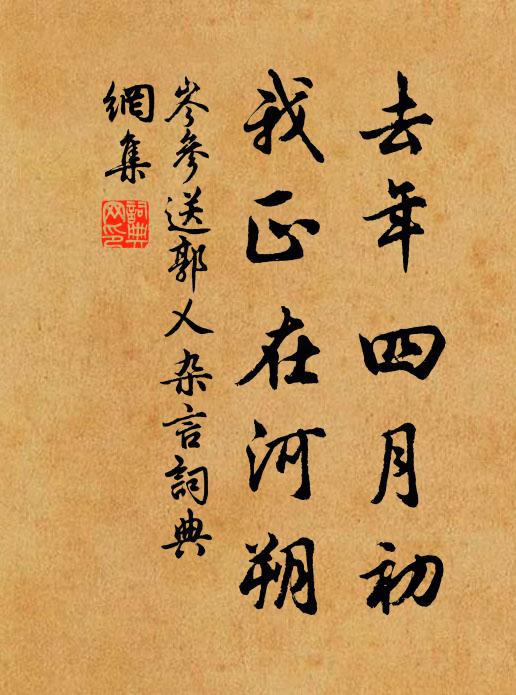 去年四月初
我正在河朔
岑參送郭乂杂言詞典
網集
詞典網印